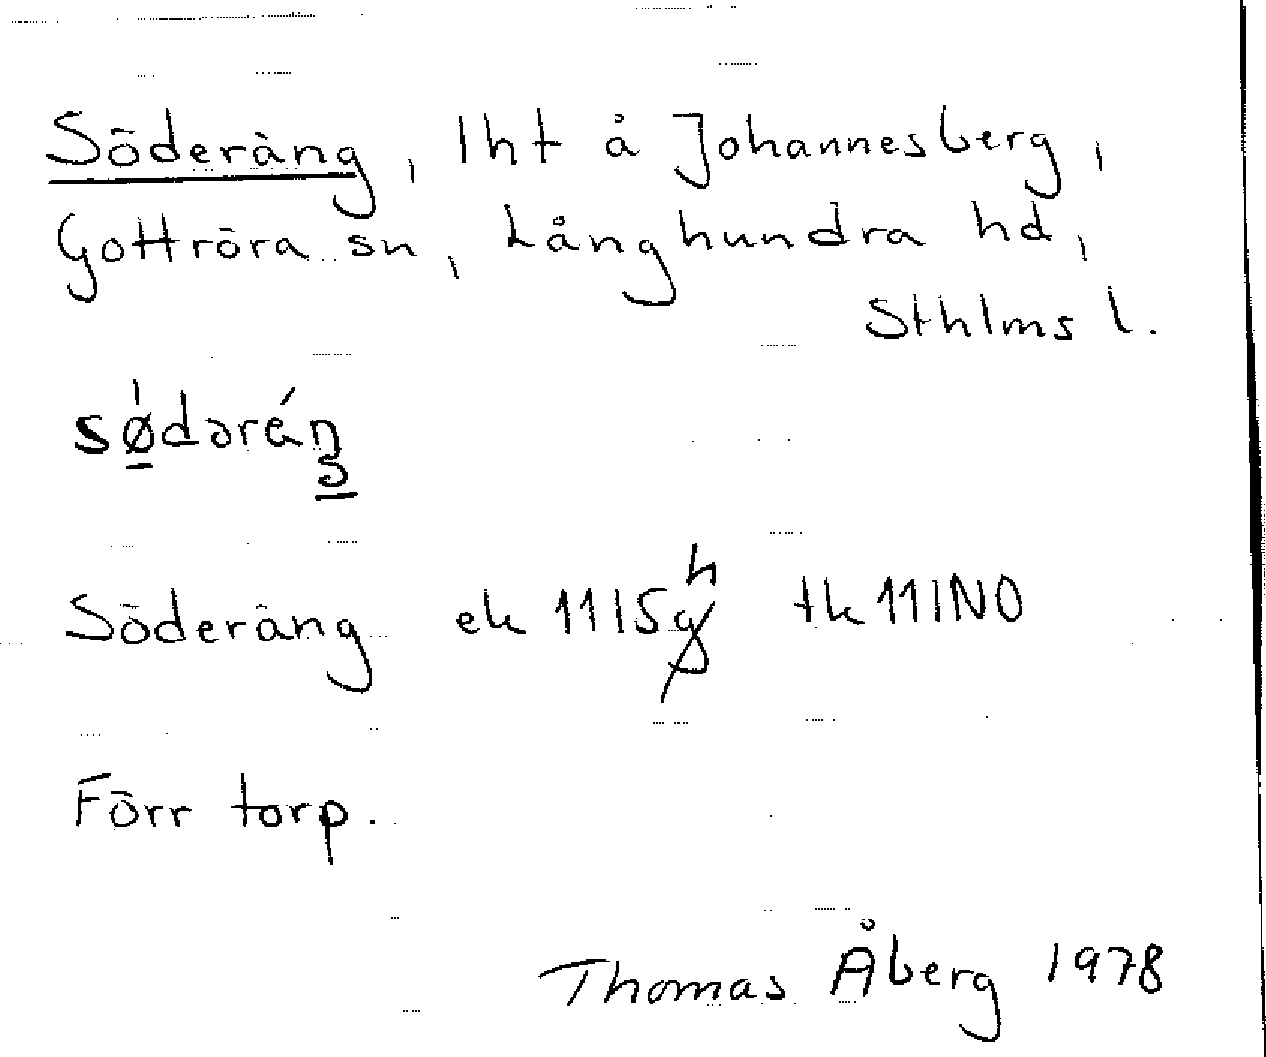 Söderäng, lht å Johannesberg,
Gottröra sn, Långhundra hd,
Sthlms l.
sø̀dəréŋ
Söderäng ek 11I5h tk 11INO
Förr torp.
Thomas Åberg 1978